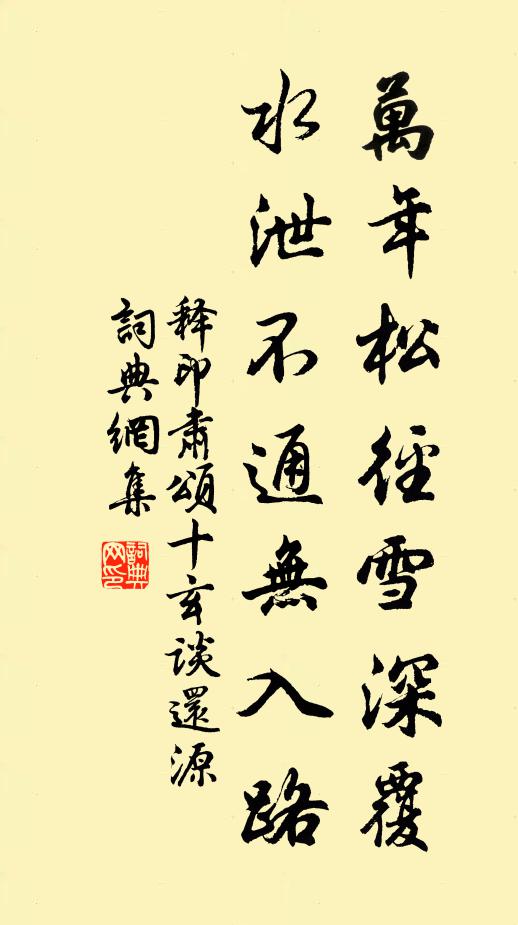 萬年松徑雪深覆
水泄不通無入路
释印肅頌十玄談還源
詞典網集
詞典網印